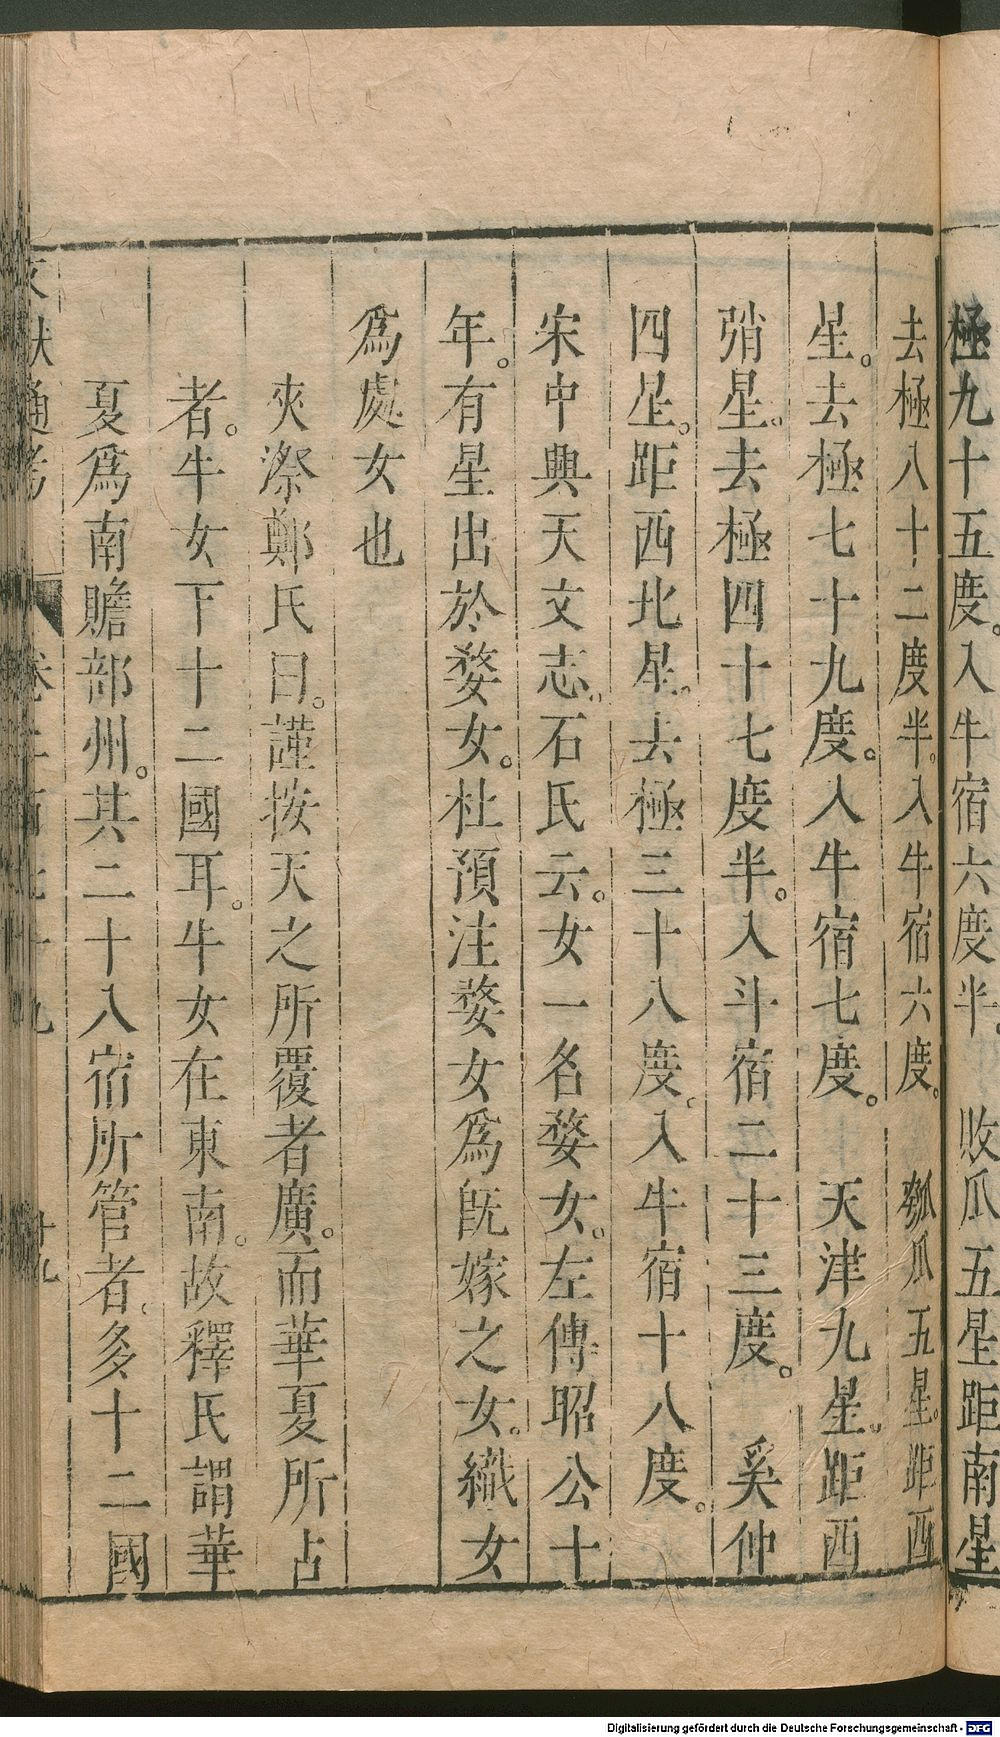 極九十五度。入牛宿六度半。　敗瓜五星距南星
去極八十二度半。入牛宿六度。　瓠瓜五星。距西
星。去極七十九度。入牛宿七度。　天津九星。距西
弰星。去極四十七度半。入斗宿二十三度。　奚仲
四星。距西北星。去極三十八度。入牛宿十八度。
宋中興天文志。石氏云。女一名婺女。左傳昭公十
年。有星出於婺女。杜預注婺女爲旣嫁之女。織女
爲處女也
夾漈鄭氏曰。謹按天之所覆者廣。而華夏所占
者。牛女下十二國耳。牛女在東南。故釋氏謂華
夏爲南贍部州。其二十八宿所管者。多十二國
文獻通考　卷二百七十九　十九
Digitalisierung gefördert durch die Deutsche Forschungsgemeinschaft - DFG